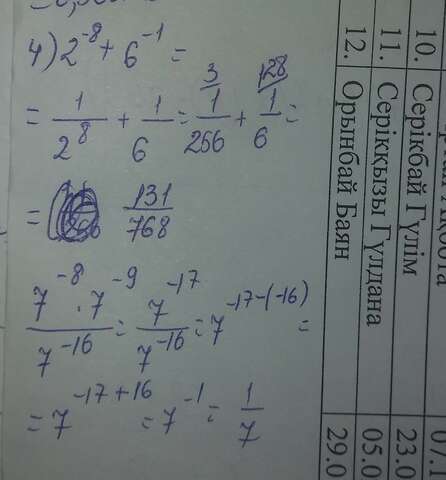 4) 2^-8 + 6^-1 =
= 1/2^8 + 1/6 = 3/ 1/256 + 128/ 1/6 =
= 131/768
7^-8 · 7^-9 / 7^-16 = 7^-17 / 7^-16 = 7^-17-(-16) =
= 7^-17+16 = 7^-1 = 1/7
10. Серікбай Гүлім 23.0
11. Серікқызы Гүлдана 05.0
12. Орынбай Баян 29.0
07.1